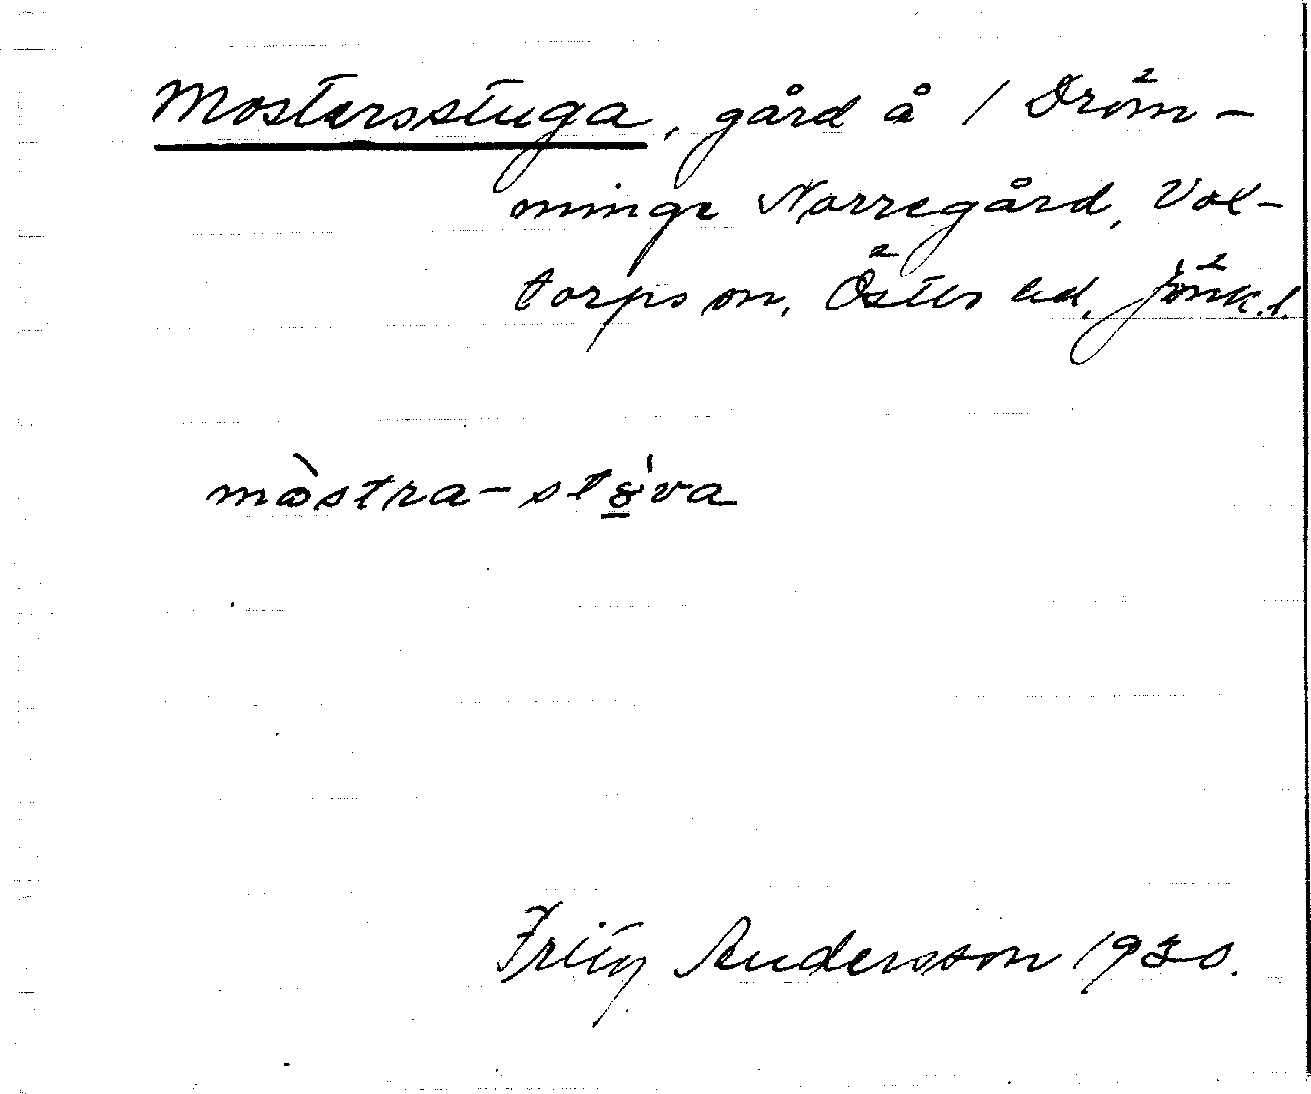 Mostersstuga, gård å 1 Dröm-
minge Norregård, Val-
torps sn, Östbo hd, Jönk. l.
mòstra-stöva
Fritz Andersson 1930.